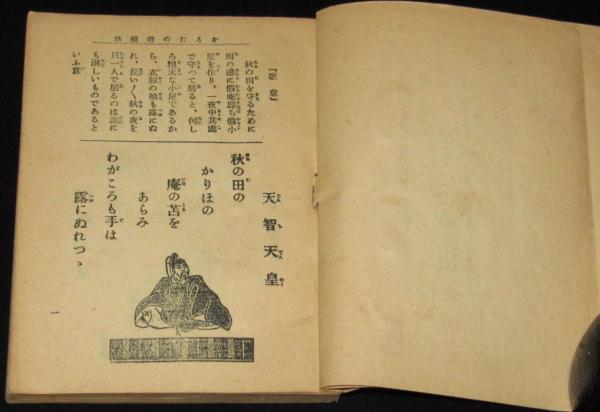 かるたの遊戯法
『歌意』
秋の田を守るために
田の邊に假庵即ち假小
屋を作り、一夜中其處
で守つて居ると、何し
ろ粗末な小屋であるか
ら、衣服の袖も露にぬ
れ、長い〱秋の夜を
只一人で居るのは誰に
も淋しいものであると
いふ意
天智天皇
秋の田の
かりほの
庵の苫を
あらみ
わがころも手は
露にぬれつゝ
一